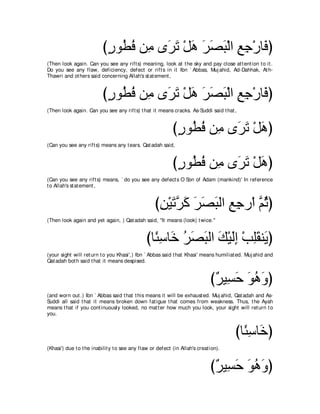 (فَارْجِعِ الْبَصَرَ هَلْ تَرَى مِن فُطُورٍ)
(Then look again. Can you see any rifts) meaning, look at the sky and pay close attention to it.
Do you see any flaw, deficiency, defect or rifts in it Ibn `Abbas, Mujahid, Ad-Dahhak, Ath-
Thawri and others said concerning Allah's statement,
(فَارْجِعِ الْبَصَرَ هَلْ تَرَى مِن فُطُورٍ)
(Then look again. Can you see any rifts) that it means cracks. As-Suddi said that,
(هَلْ تَرَى مِن فُطُورٍ)
(Can you see any rifts) means any tears. Qatadah said,
(هَلْ تَرَى مِن فُطُورٍ)
(Can you see any rifts) means, `do you see any defects O Son of Adam (mankind)' In reference
to Allah's statement,
(ثُمَّ ارجِعِ البَصَرَ كَرَّتَيْنِ)
(Then look again and yet again, ) Qatadah said, "It means (look) twice."
(يَنْقَلِبْ إِلَيْكَ البَصَرُ خَاسِئًا)
(your sight will return to you Khasi',) Ibn `Abbas said that Khasi' means humiliated. Mujahid and
Qatadah both said that it means despised.
(وَهُوَ حَسِيرٌ)
(and worn out.) Ibn `Abbas said that this means it will be exhausted. Mujahid, Qatadah and As-
Suddi all said that it means broken down fatigue that comes from weakness. Thus, the Ayah
means that if you continuously looked, no matter how much you look, your sight will return to
you,
(خَاسِئًا)
(Khasi') due to the inability to see any flaw or defect (in Allah's creation).
(وَهُوَ حَسِيرٌ)